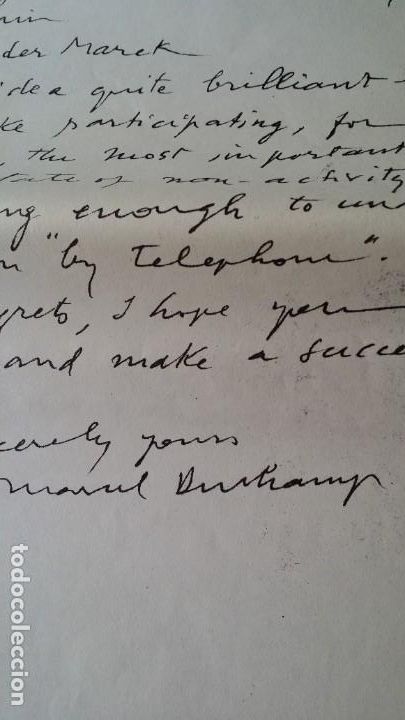 der Marck
idea quite brilliant -
ke participating, for
, the most important
state of non-activity
ng enough to un
n "by telephone".
grets, I hope you
and make a succe
cerely yours
Marcel Duchamp
todocoleccion